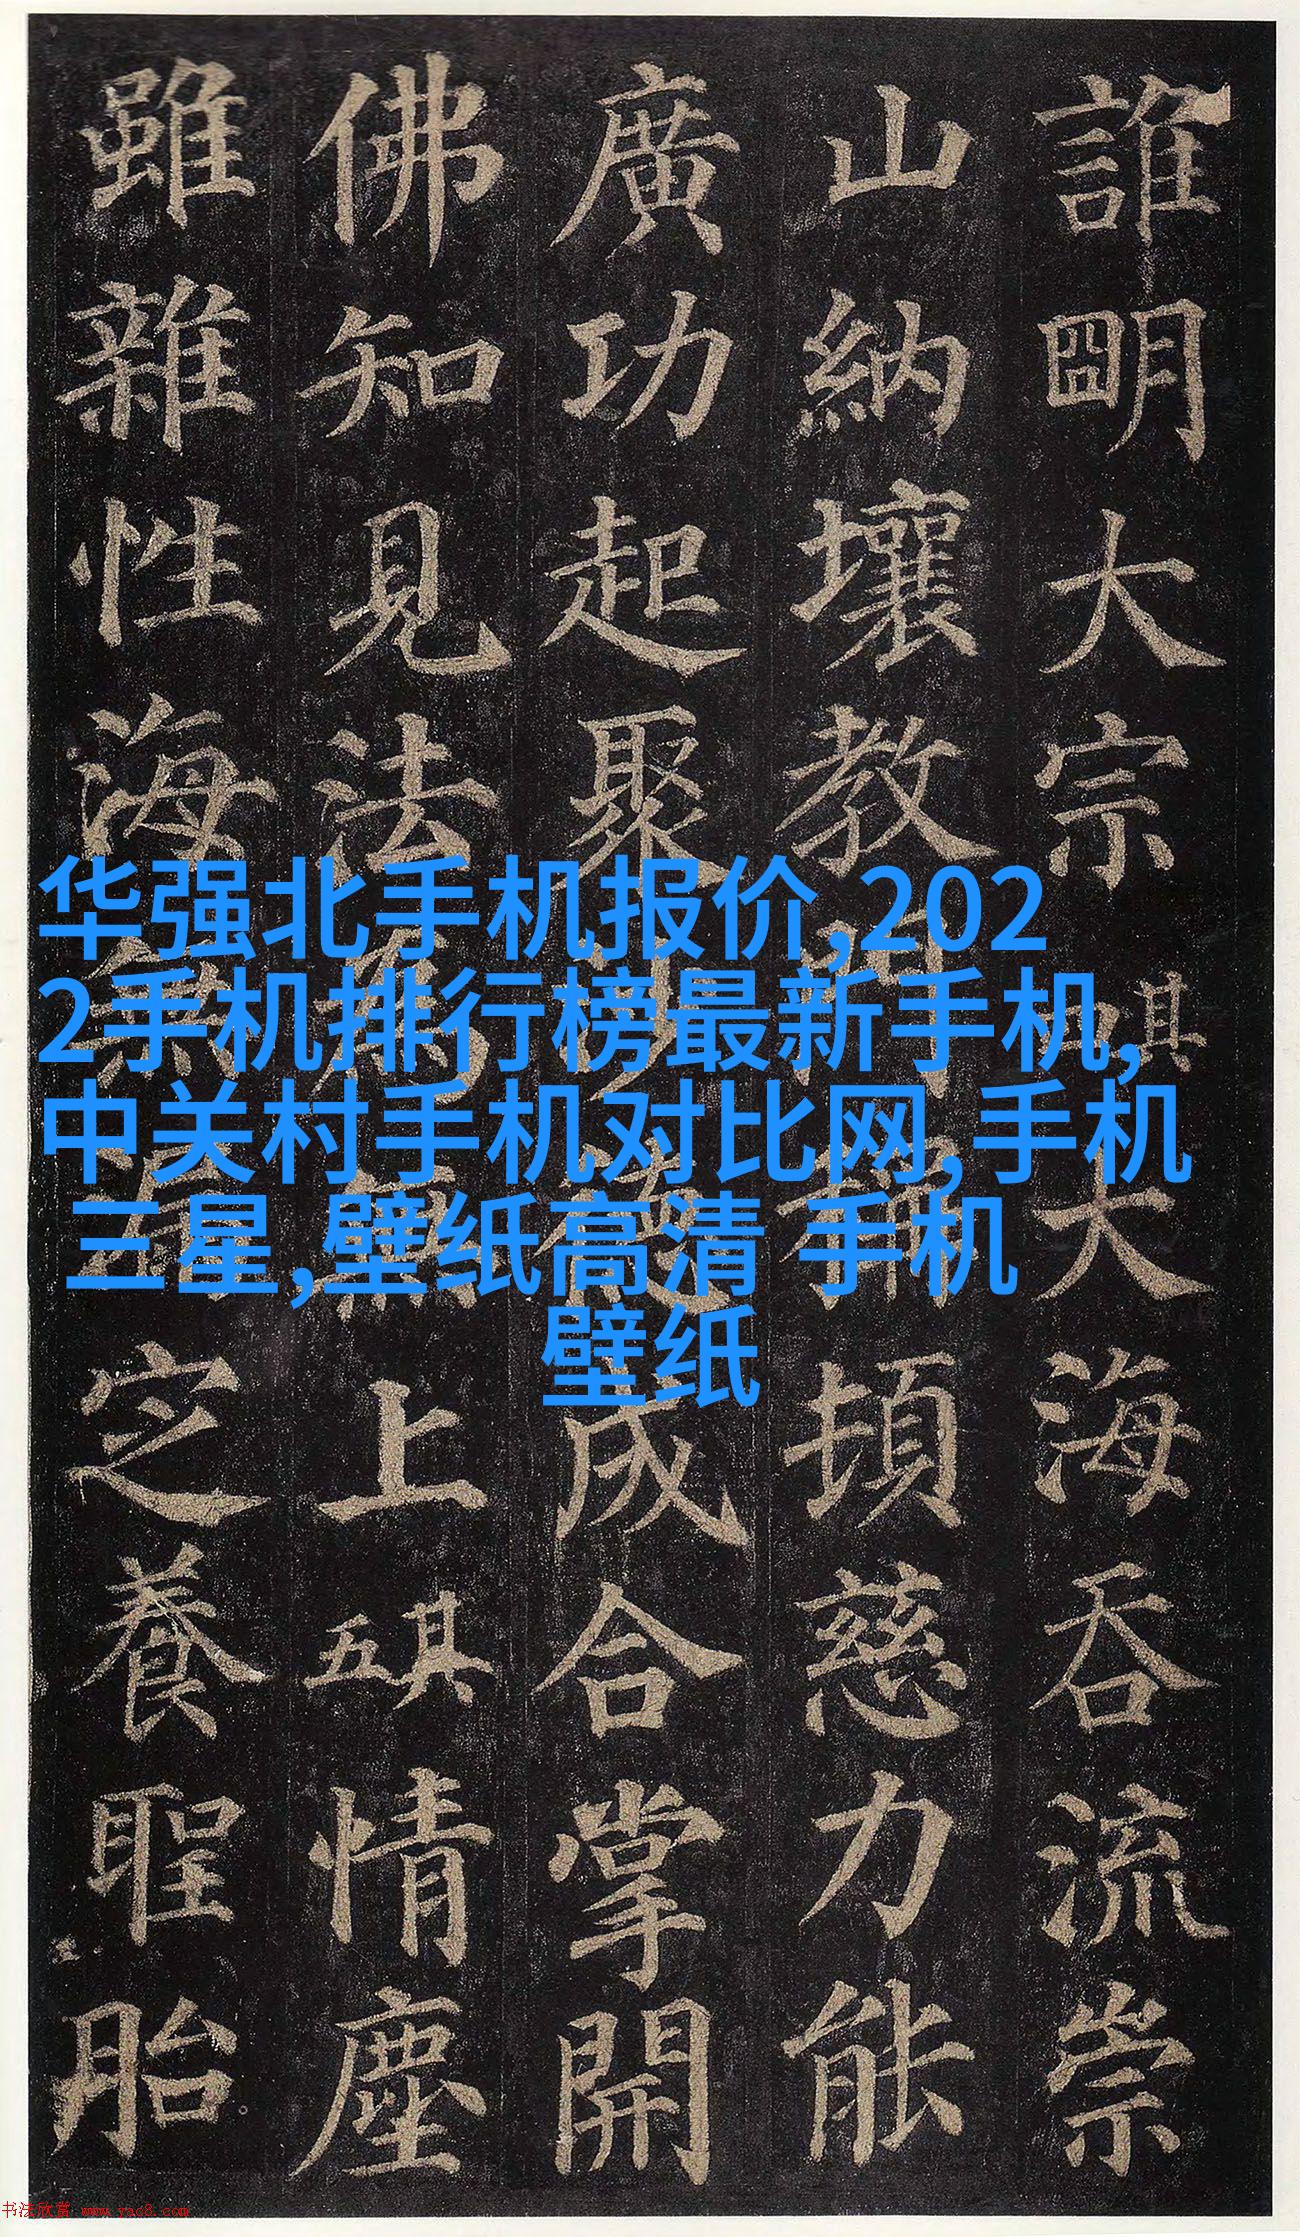 誰明大宗其四大海吞流崇
山納壤教門稱頓慈力能
廣功起聚沙德成合掌開
佛知見法為無上其五情塵
雖雜性海無漏定養聖胎
华强北手机报价,202
2手机排行榜最新手机,
中关村手机对比网,手机
三星,壁纸高清 手机
壁纸
书法欣赏 www.yac8.com